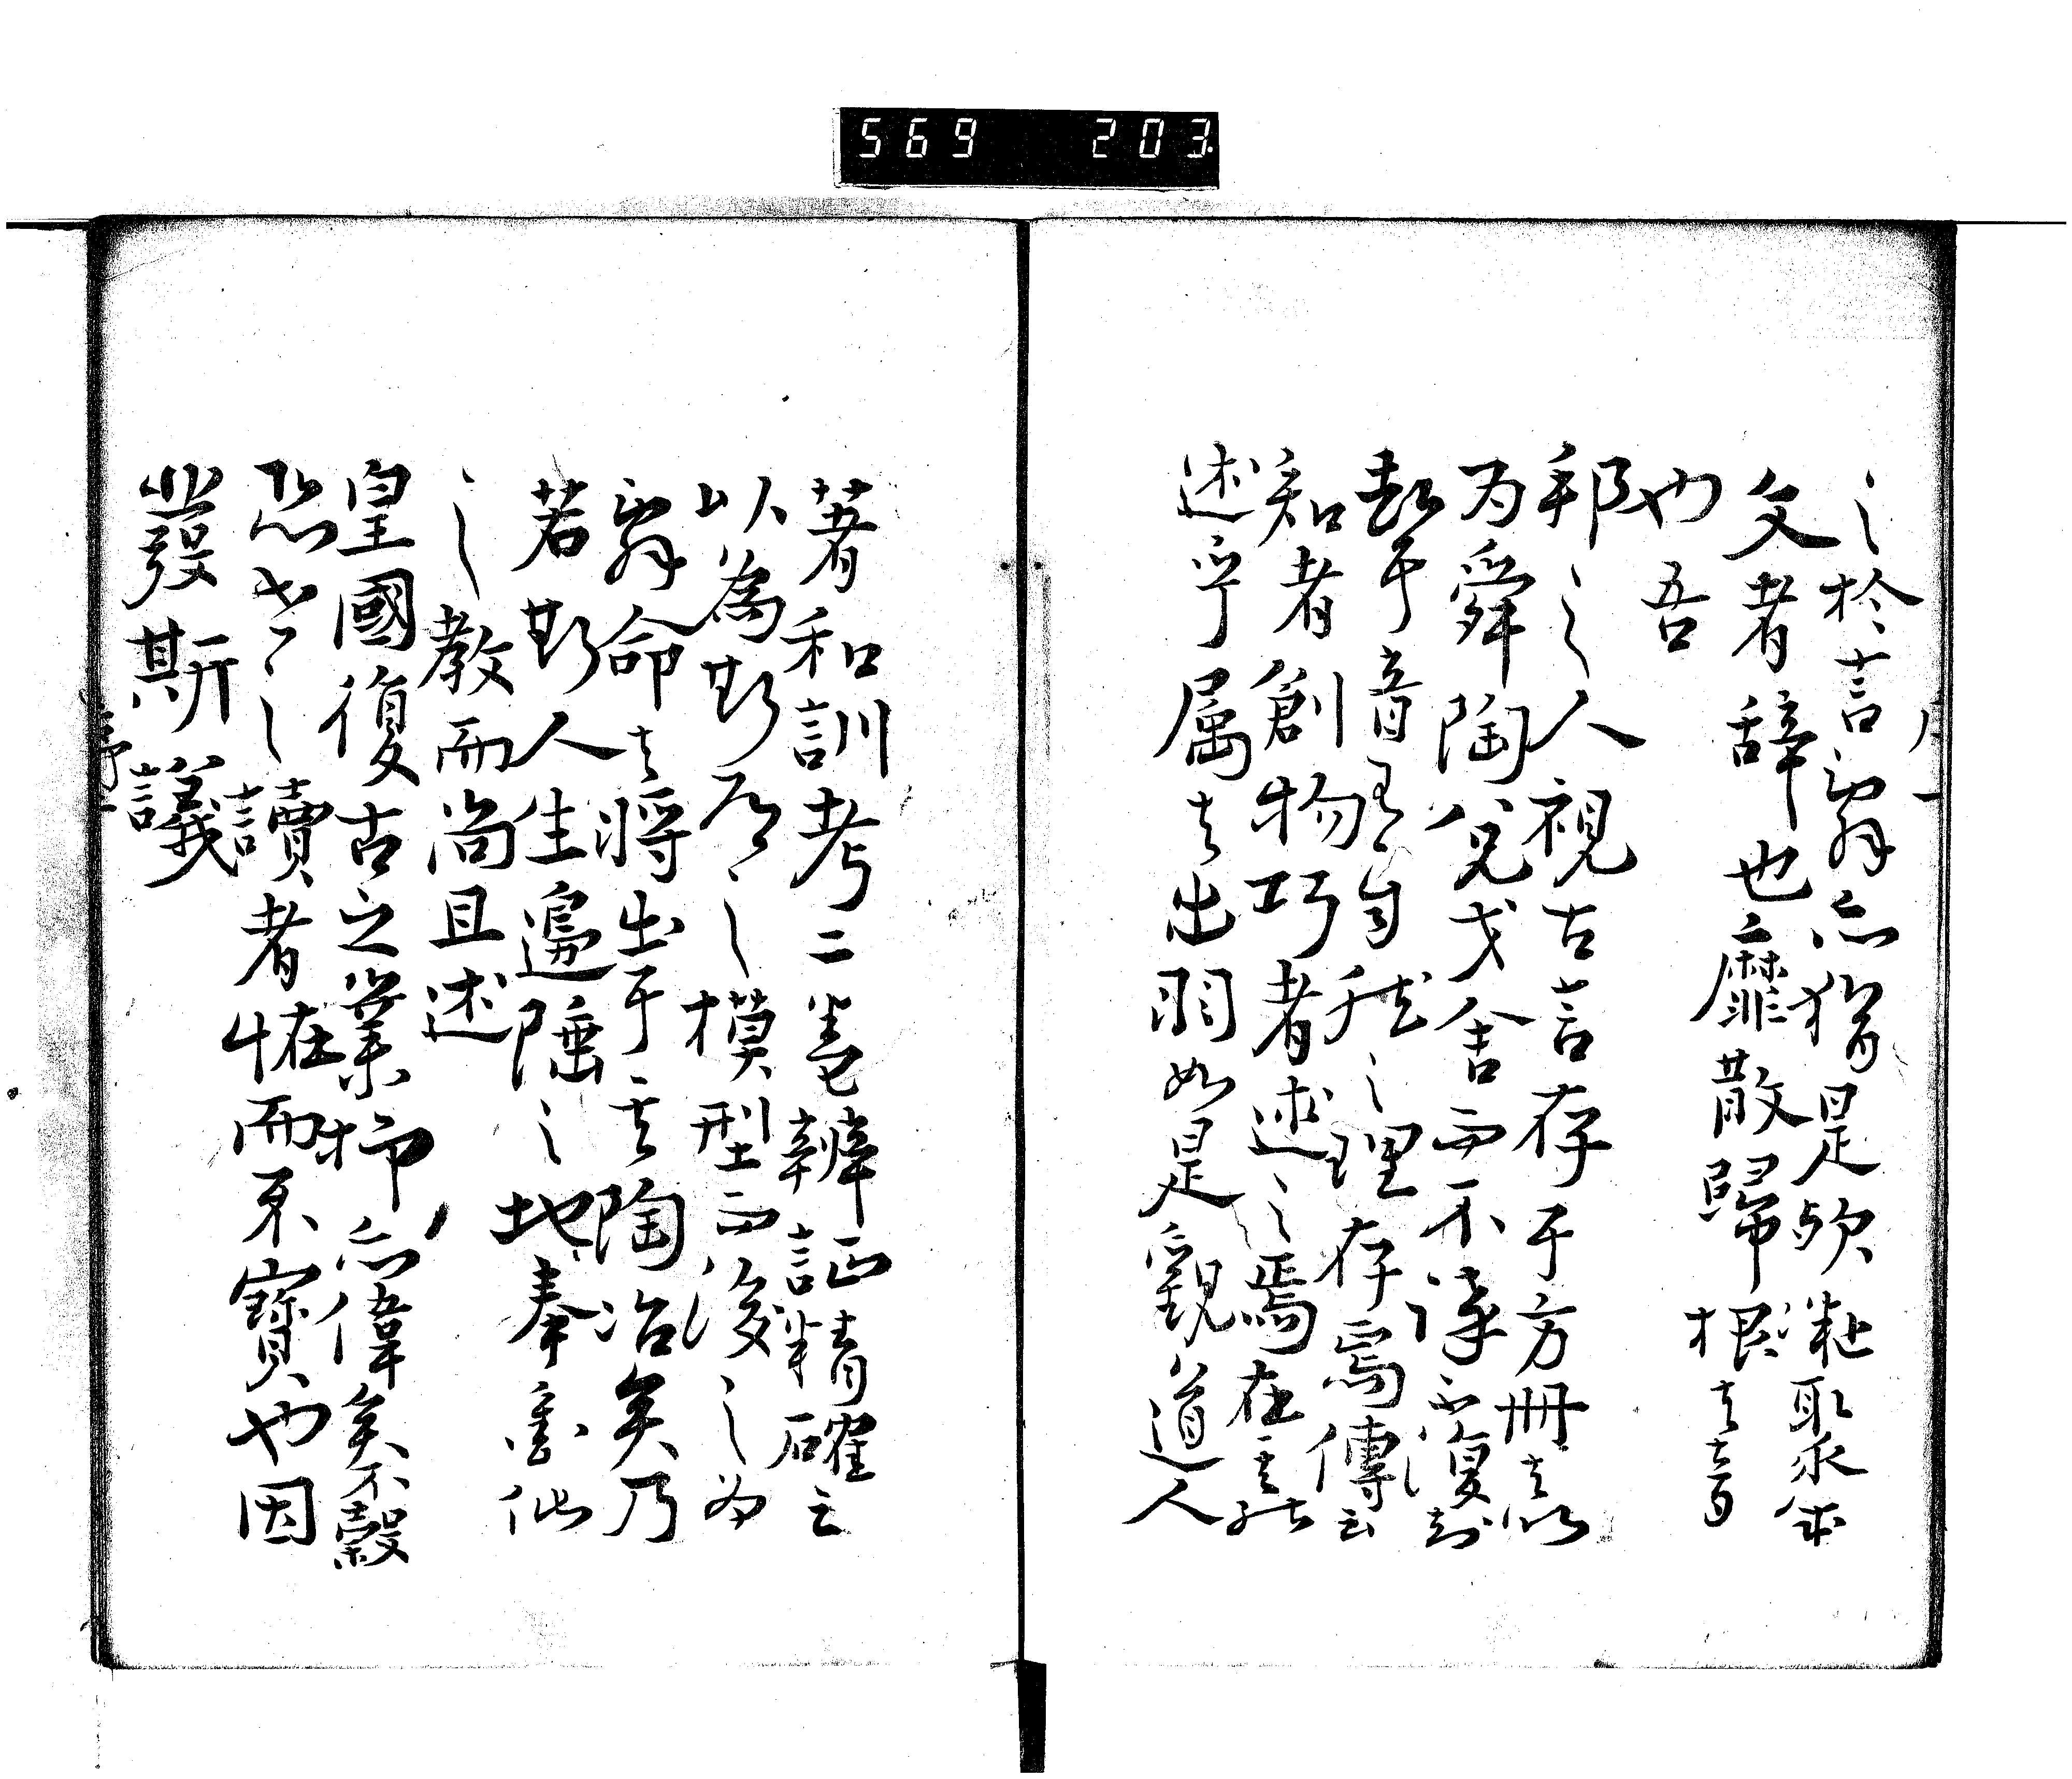 569 203
之於言辭亦猶是歟粘聚成
文者辞也靡散歸根者音
也吾
邦之人視古言存于方冊者以
為舜陶兌戈舍而不講不復討
于音有自然之理存焉傳云
知者創物巧者述之焉在其能
述乎属者出羽如是觀道人
著和訓考二卷辨証精確
以為斯之模型而後之為
辭命者将出于其陶冶矣乃
若斯人生邊陲之地奉他
之教而尚且述
皇國復古之業抑亦偉矣不穀
恐世之讀者怪而不寶也因
發斯議